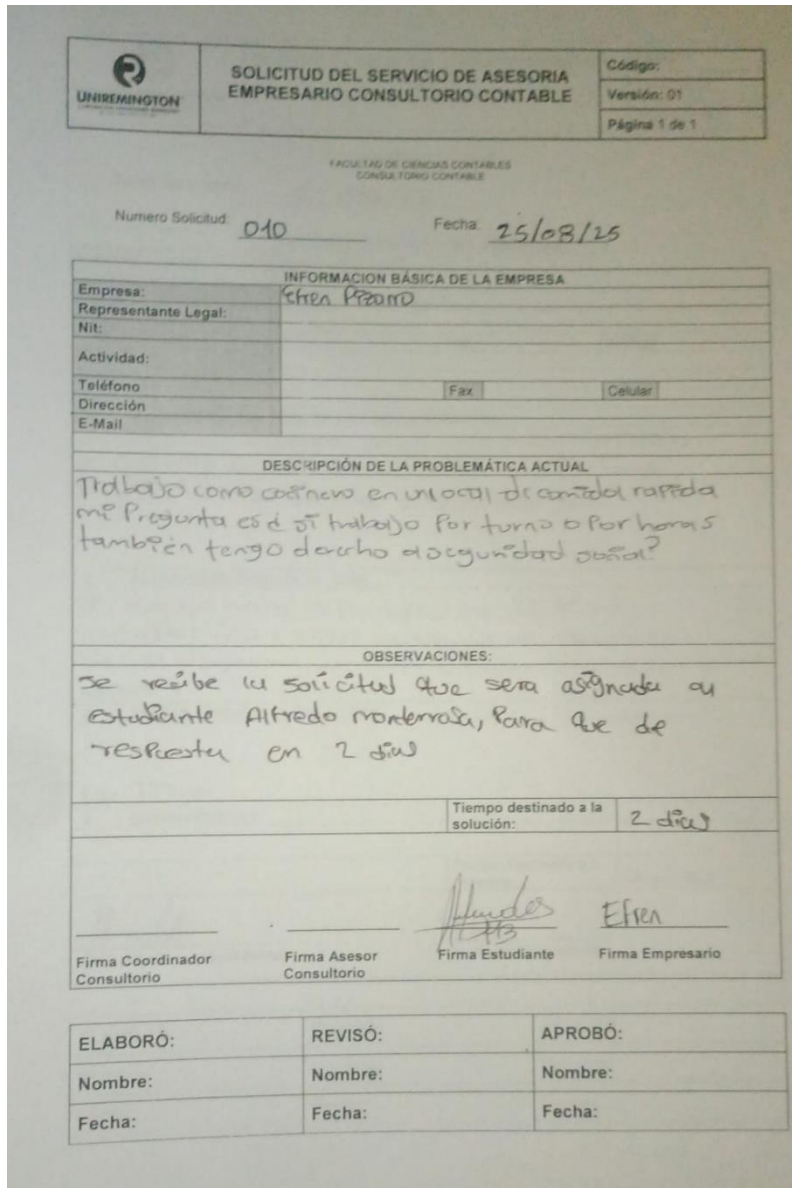 UNIREMINGTON
SOLICITUD DEL SERVICIO DE ASESORIA
EMPRESARIO CONSULTORIO CONTABLE
Código:
Versión: 01
Página 1 de 1
FACULTAD DE CIENCIAS CONTABLES
CONSULTORIO CONTABLE
Numero Solicitud: 010
Fecha: 25/08/25
INFORMACION BÁSICA DE LA EMPRESA
Empresa: Efren Pizarro
Representante Legal:
Nit:
Actividad:
Teléfono Fax Celular
Dirección
E-Mail
DESCRIPCIÓN DE LA PROBLEMÁTICA ACTUAL
Trabajo como cocinero en un local de comida rapida
mi Pregunta es ¿ si trabajo Por turno o Por horas
también tengo derecho a seguridad social?
OBSERVACIONES:
se recibe la solicitud que sera asignada al
estudiante Alfredo monterrosa, Para que de
respuesta en 2 dias
Tiempo destinado a la
solución: 2 dias
Efren
Firma Coordinador
Consultorio
Firma Asesor
Consultorio
Firma Estudiante
Firma Empresario
ELABORÓ: REVISÓ: APROBÓ:
Nombre: Nombre: Nombre:
Fecha: Fecha: Fecha: